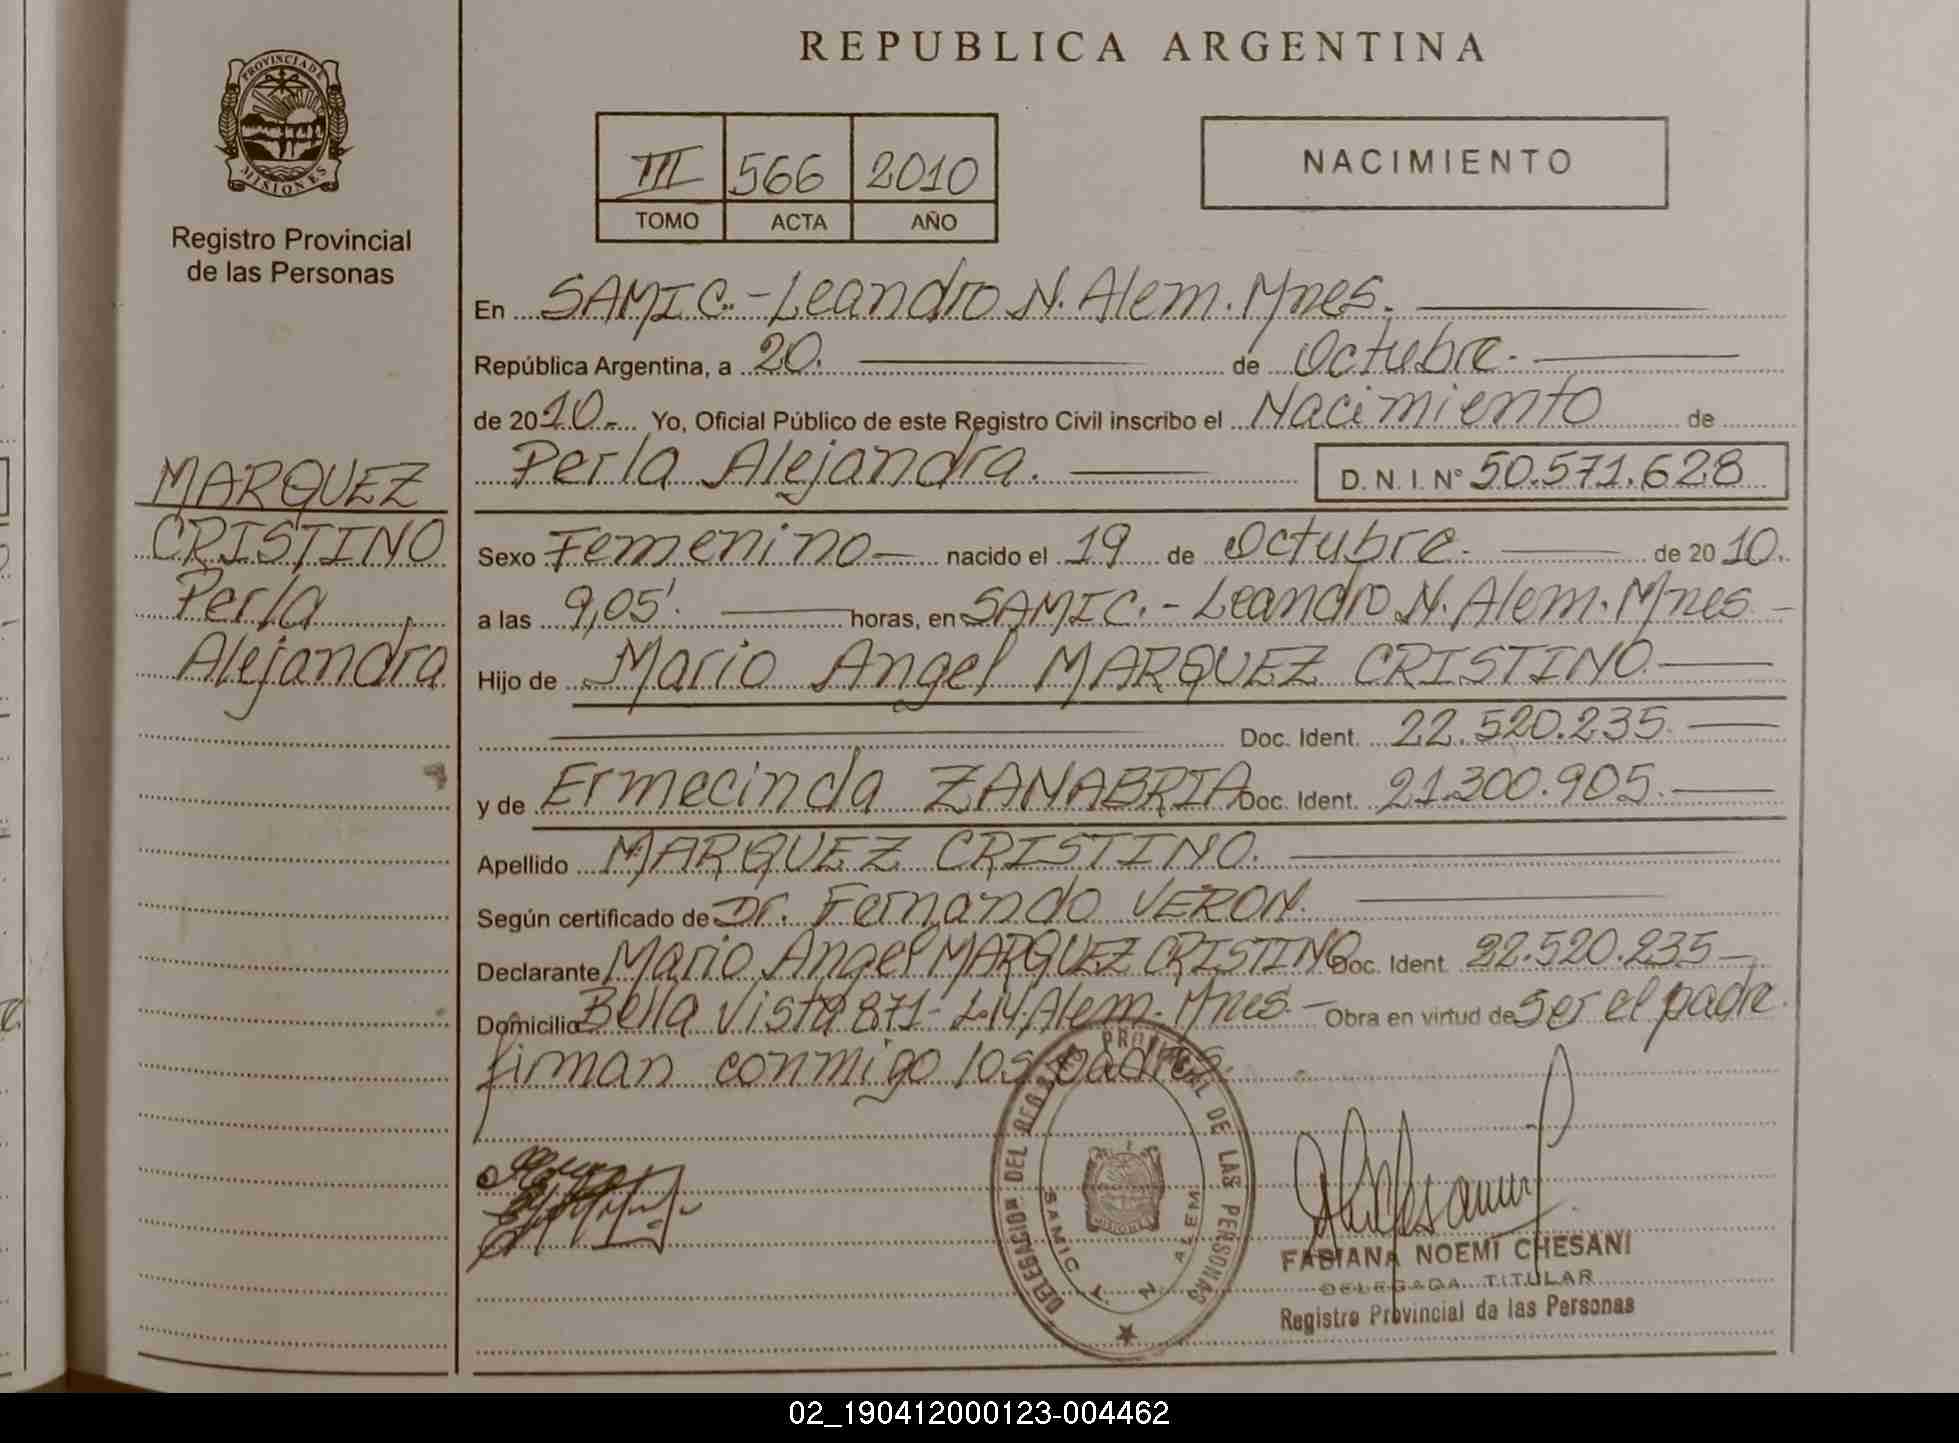 REPUBLICA ARGENTINA
PROVINCIA DE
MISIONES
Registro Provincial
de las Personas
III 566 2010
TOMO ACTA AÑO
NACIMIENTO
En SAMIC.-Leandro N. Alem. Mnes.
República Argentina, a 20. de Octubre.
de 2010.- Yo, Oficial Público de este Registro Civil inscribo el Nacimiento de
Perla Alejandra. D. N. I. Nº 50.571.628
MARQUEZ
CRISTINO
Perla
Alejandra
Sexo Femenino nacido el 19 de Octubre. de 2010.
a las 9,05'. horas, en SAMIC.- Leandro N. Alem. Mnes.
Hijo de Mario Angel MARQUEZ CRISTINO.
Doc. Ident. 22.520.235.
y de Ermecinda ZANABRIA Doc. Ident. 21.300.905.
Apellido MARQUEZ CRISTINO.
Según certificado de Dr. Fernando VERON.
Declarante Mario Angel MARQUEZ CRISTINO Doc. Ident. 22.520.235
Domicilio Bella Vista 871- L.N.Alem. Mnes.- Obra en virtud de ser el padre.
firman conmigo los padres.
DELEGACION DEL REGISTRO PROVINCIAL DE LAS PERSONAS
SAMIC L. N. ALEM
MISIONES
FABIANA NOEMI CHESANI
DELEGADA TITULAR
Registro Provincial de las Personas
02_190412000123-004462